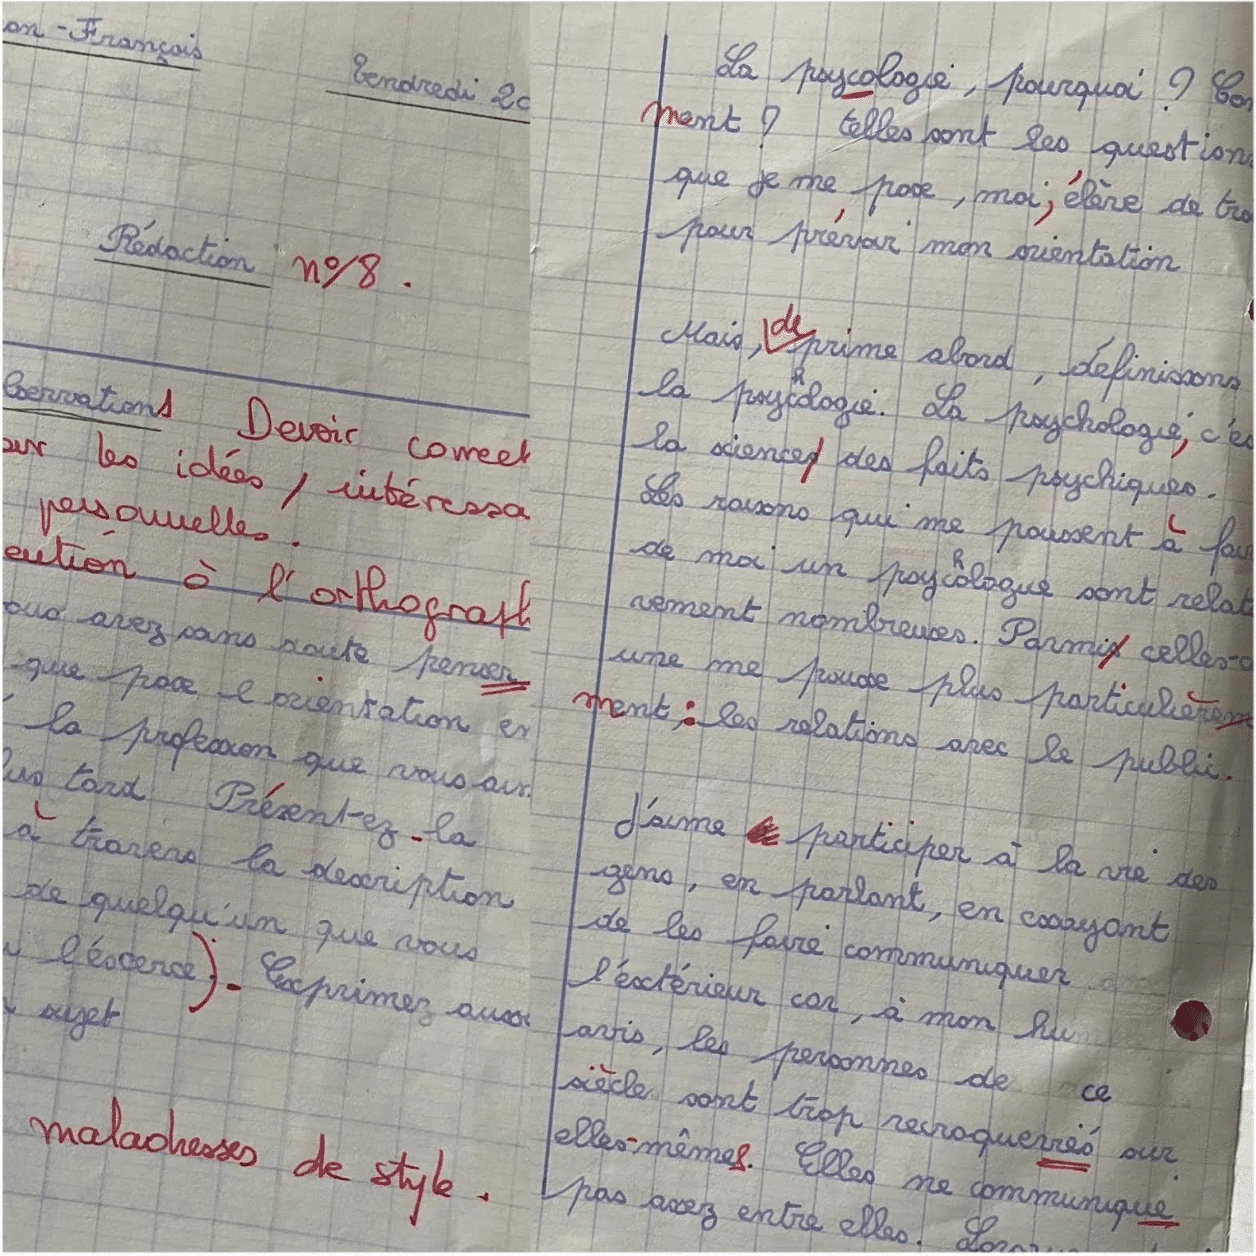 on-Français
Vendredi 20
Rédaction n°8.
bservations Devoir correct
sur les idées, intéressa
personnelles.
à l'orthograph
ous avez sans doute penser
que pose l'orientation en
la profession que vous aur
lus tard. Présent-ez-la
à travers la description
de quelqu'un que vous
l'éxcerce). Exprimez aussi
sujet
maladresses de style.
La psycologie, pourquoi ? Com
ment ? telles sont les question
que je me pose, moi, élève de tro
pour prévoir mon orientation
Mais, de prime abord, définissons
la psychologie. La psychologie, c'es
la sciences des faits psychiques.
Les raisons qui me poussent à fai
de moi un psychologue sont relat
vement nombreuses. Parmis celles-c
une me pousse plus particulièrem
ment : les relations avec le public.
J'aime participer à la vie des
gens, en parlant, en essayant
de les faire communiquer
l'extérieur car, à mon hum
avis, les personnes de ce
siècle sont trop recroquevrés sur
elles-mêmes. Elles ne communique
pas assez entre elles.